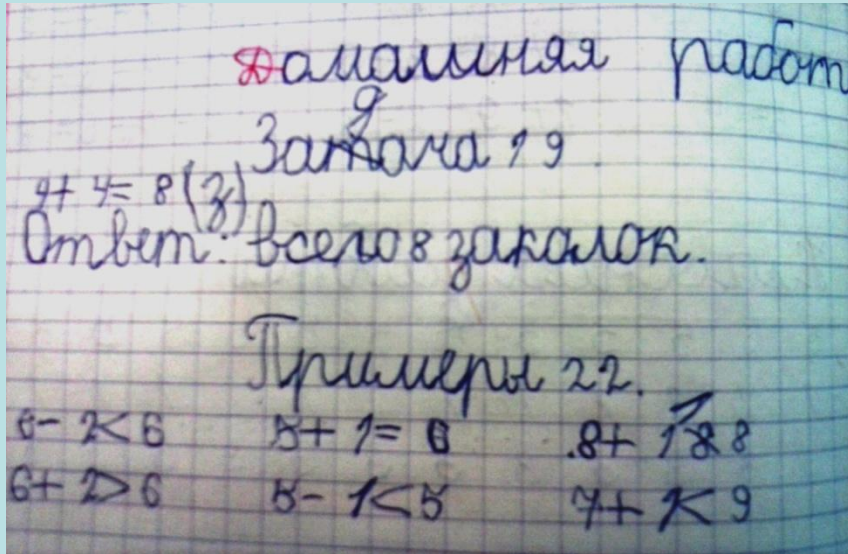 Домашняя работ
Затача 19
д
4+ 4= 8 (з)
Ответ: всего 8 заколок.
Примеры 22.
6- 2< 6 5+ 1= 6 8+ 1 > 8
6+ 2> 6 5- 1< 5 7+ 1< 9